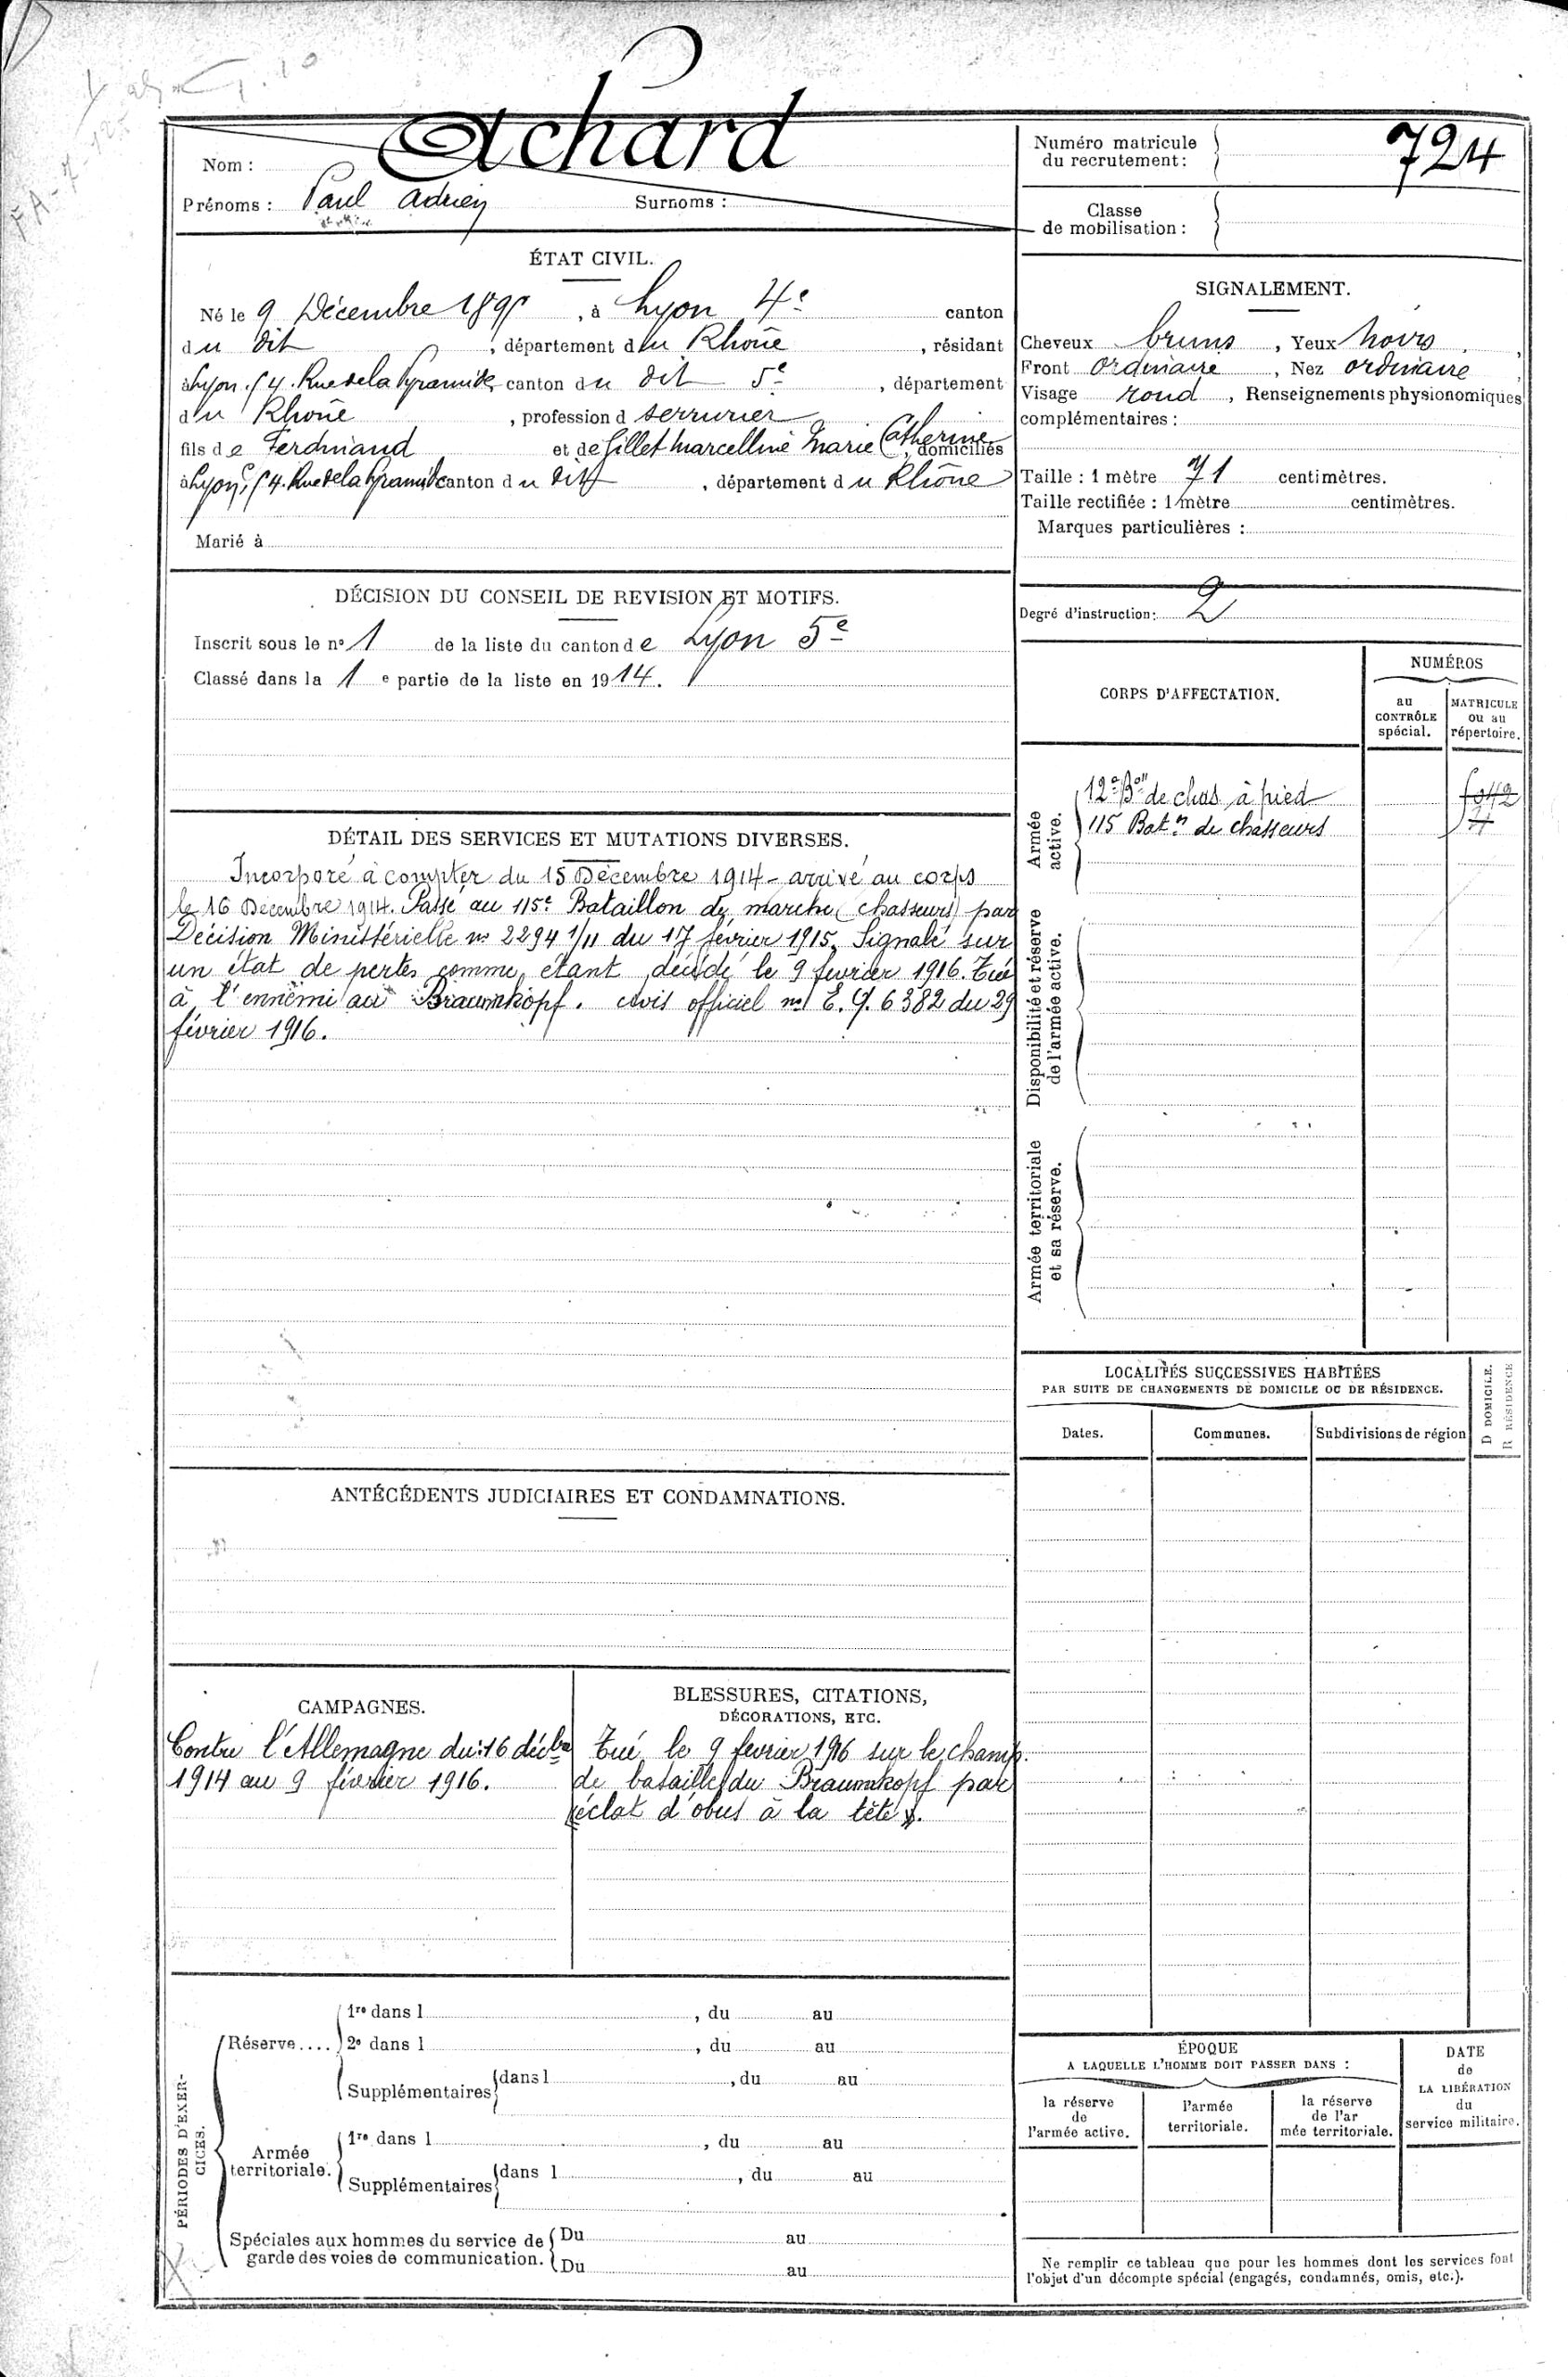 Achard
Nom :
Prénoms : Paul Adrien Surnoms :
Numéro matricule
du recrutement :
724
Classe
de mobilisation :
ÉTAT CIVIL.
Né le 9 Décembre , à Lyon 4e canton
du dit , département du Rhône , résidant
à Lyon. 54. Rue de la Pyramide canton du dit 5e , département
du Rhône , profession d serrurier
fils de Ferdinand et de Gillet Marcelline Marie Catherine domiciliés
à Lyon, 54. Rue de la Pyramide canton du dit , département du Rhône
Marié à
SIGNALEMENT.
Cheveux bruns , Yeux noirs ,
Front ordinaire , Nez ordinaire ,
Visage rond , Renseignements physionomiques
complémentaires :
Taille : 1 mètre 71 centimètres.
Taille rectifiée : 1 mètre centimètres.
Marques particulières :
Degré d'instruction : 2
DÉCISION DU CONSEIL DE REVISION ET MOTIFS.
Inscrit sous le n° 1 de la liste du canton de Lyon 5e
Classé dans la 1 e partie de la liste en 1914.
CORPS D'AFFECTATION.
NUMÉROS
au
CONTRÔLE
spécial.
MATRICULE
ou au
répertoire.
Armée
active.
12e Bon de chas à pied
115 Batn de chasseurs
Disponibilité et réserve
de l'armée active.
Armée territoriale
et sa réserve.
DÉTAIL DES SERVICES ET MUTATIONS DIVERSES.
Incorporé à compter du 15 Décembre 1914 - arrivé au corps
le 16 Décembre 1914. Passé au 115e Bataillon de marche (chasseurs) par
Décision Ministérielle no 2294 1/11 du 17 février 1915. Signalé sur
un état de pertes comme étant décédé le 9 février 1916. Tué
à l'ennemi au Braunkopf. Avis officiel no 6382 du 29
février 1916.
LOCALITÉS SUCCESSIVES HABITÉES
PAR SUITE DE CHANGEMENTS DE DOMICILE OU DE RÉSIDENCE.
Dates.
Communes.
Subdivisions de région
D DOMICILE.
R RÉSIDENCE
ANTÉCÉDENTS JUDICIAIRES ET CONDAMNATIONS.
CAMPAGNES.
Contre l'Allemagne du 16 décbre
1914 au 9 février 1916.
BLESSURES, CITATIONS,
DÉCORATIONS, ETC.
Tué le 9 février 1916 sur le champ
de bataille du Braunkopf par
(éclat d'obus à la tête).
PÉRIODES D'EXER-
CICES.
Réserve....
1re dans l , du au
2e dans l , du au
Supplémentaires dans l , du au
Armée
territoriale.
1re dans l , du au
Supplémentaires dans l , du au
Spéciales aux hommes du service de
garde des voies de communication.
Du au
Du au
ÉPOQUE
A LAQUELLE L'HOMME DOIT PASSER DANS :
la réserve
de
l'armée active.
l'armée
territoriale.
la réserve
de l'ar
mée territoriale.
DATE
de
LA LIBÉRATION
du
service militaire.
Ne remplir ce tableau que pour les hommes dont les services font
l'objet d'un décompte spécial (engagés, condamnés, omis, etc.).